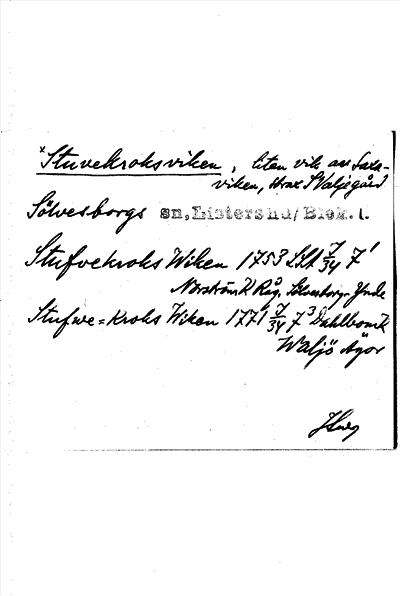 *Stuvekroksviken, liten vik av Saxa-
viken, strax S Valjegård
Sölvesborgs sn, Listers hd/Blek. l.
Stufvekroks Wiken 1753 LSA J/34 7¹
Norström K Råg. Sölvesborg-Ynde
Stufwe=Kroks Wiken 1771 J/34 7³ Dahlbom K
Waljö Ägor